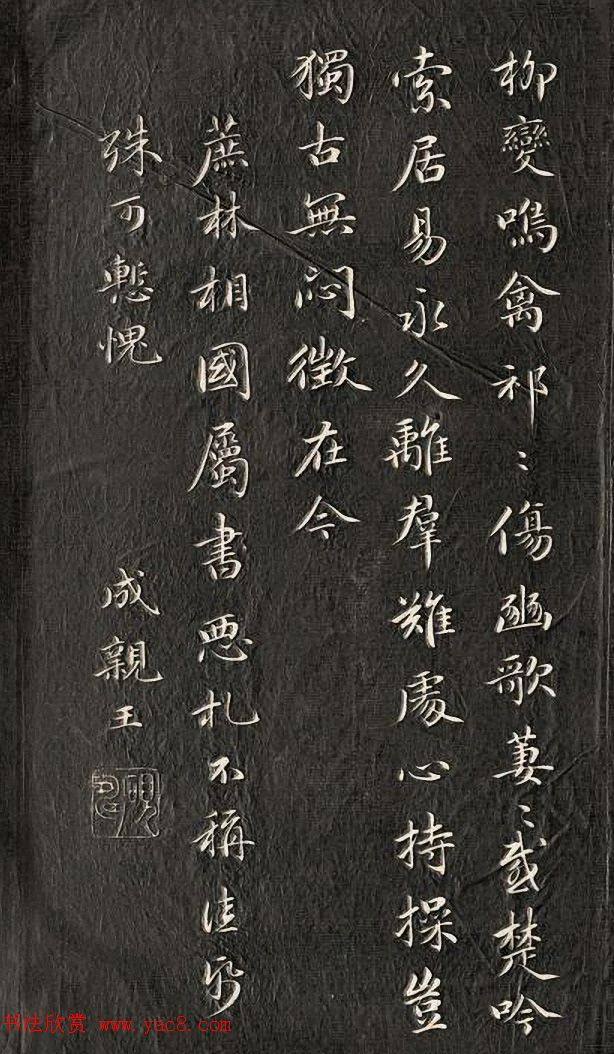 柳變鳴禽祁〻傷豳歌萋〻感楚吟
索居易永久離羣難處心持操豈
獨古無悶徵在今
蔗林相國屬書惡札不稱佳紙
殊可慙愧
成親王
书法欣赏 www.yac8.com